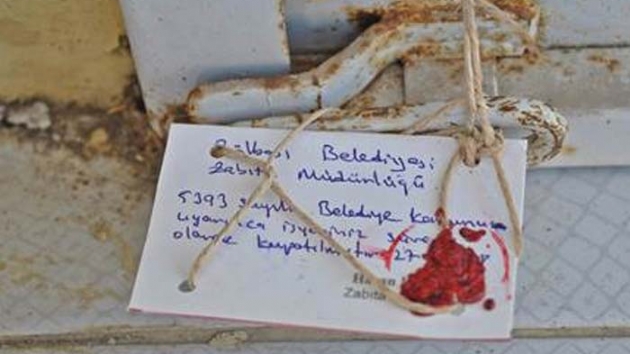 Gölbaşı Belediyesi
Zabıta Müdürlüğü
5393 sayılı Belediye Kanununa
uyarınca işyeriniz süre
olarak kapatılmıştır 27
Zabıta